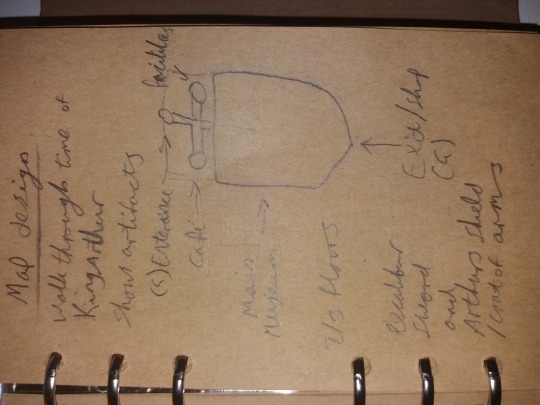 Map design
Walk through time of
King Arthur
Show artifacts
(c) Entrance → facilities
Café →
Main
Museum →
2/3 floors
Exit/shop
(a)
Excalibur
Sword
and
Arthurs Shield
/Coat of arms